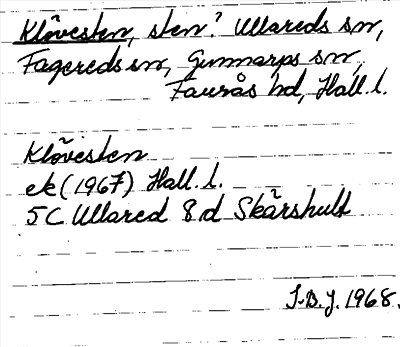 Klövesten, sten? Ullareds sn,
Fagereds sn, Gunnarps sn,
Faurås hd, Hall. l.
Klövesten
ek (1967) Hall. l.
5C Ullared 8d Skärshult
J.B.J. 1968.